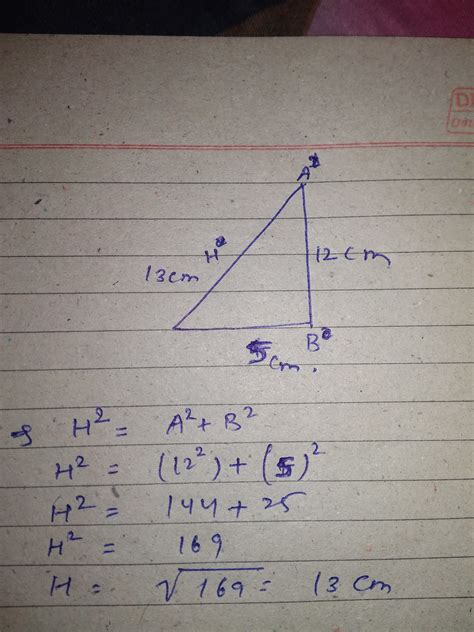 A²
H²
12 cm
13cm
B²
5cm.
H² = A² + B²
H² = (12²) + (5)²
H² = 144 + 25
H² = 169
H = √169 = 13 cm